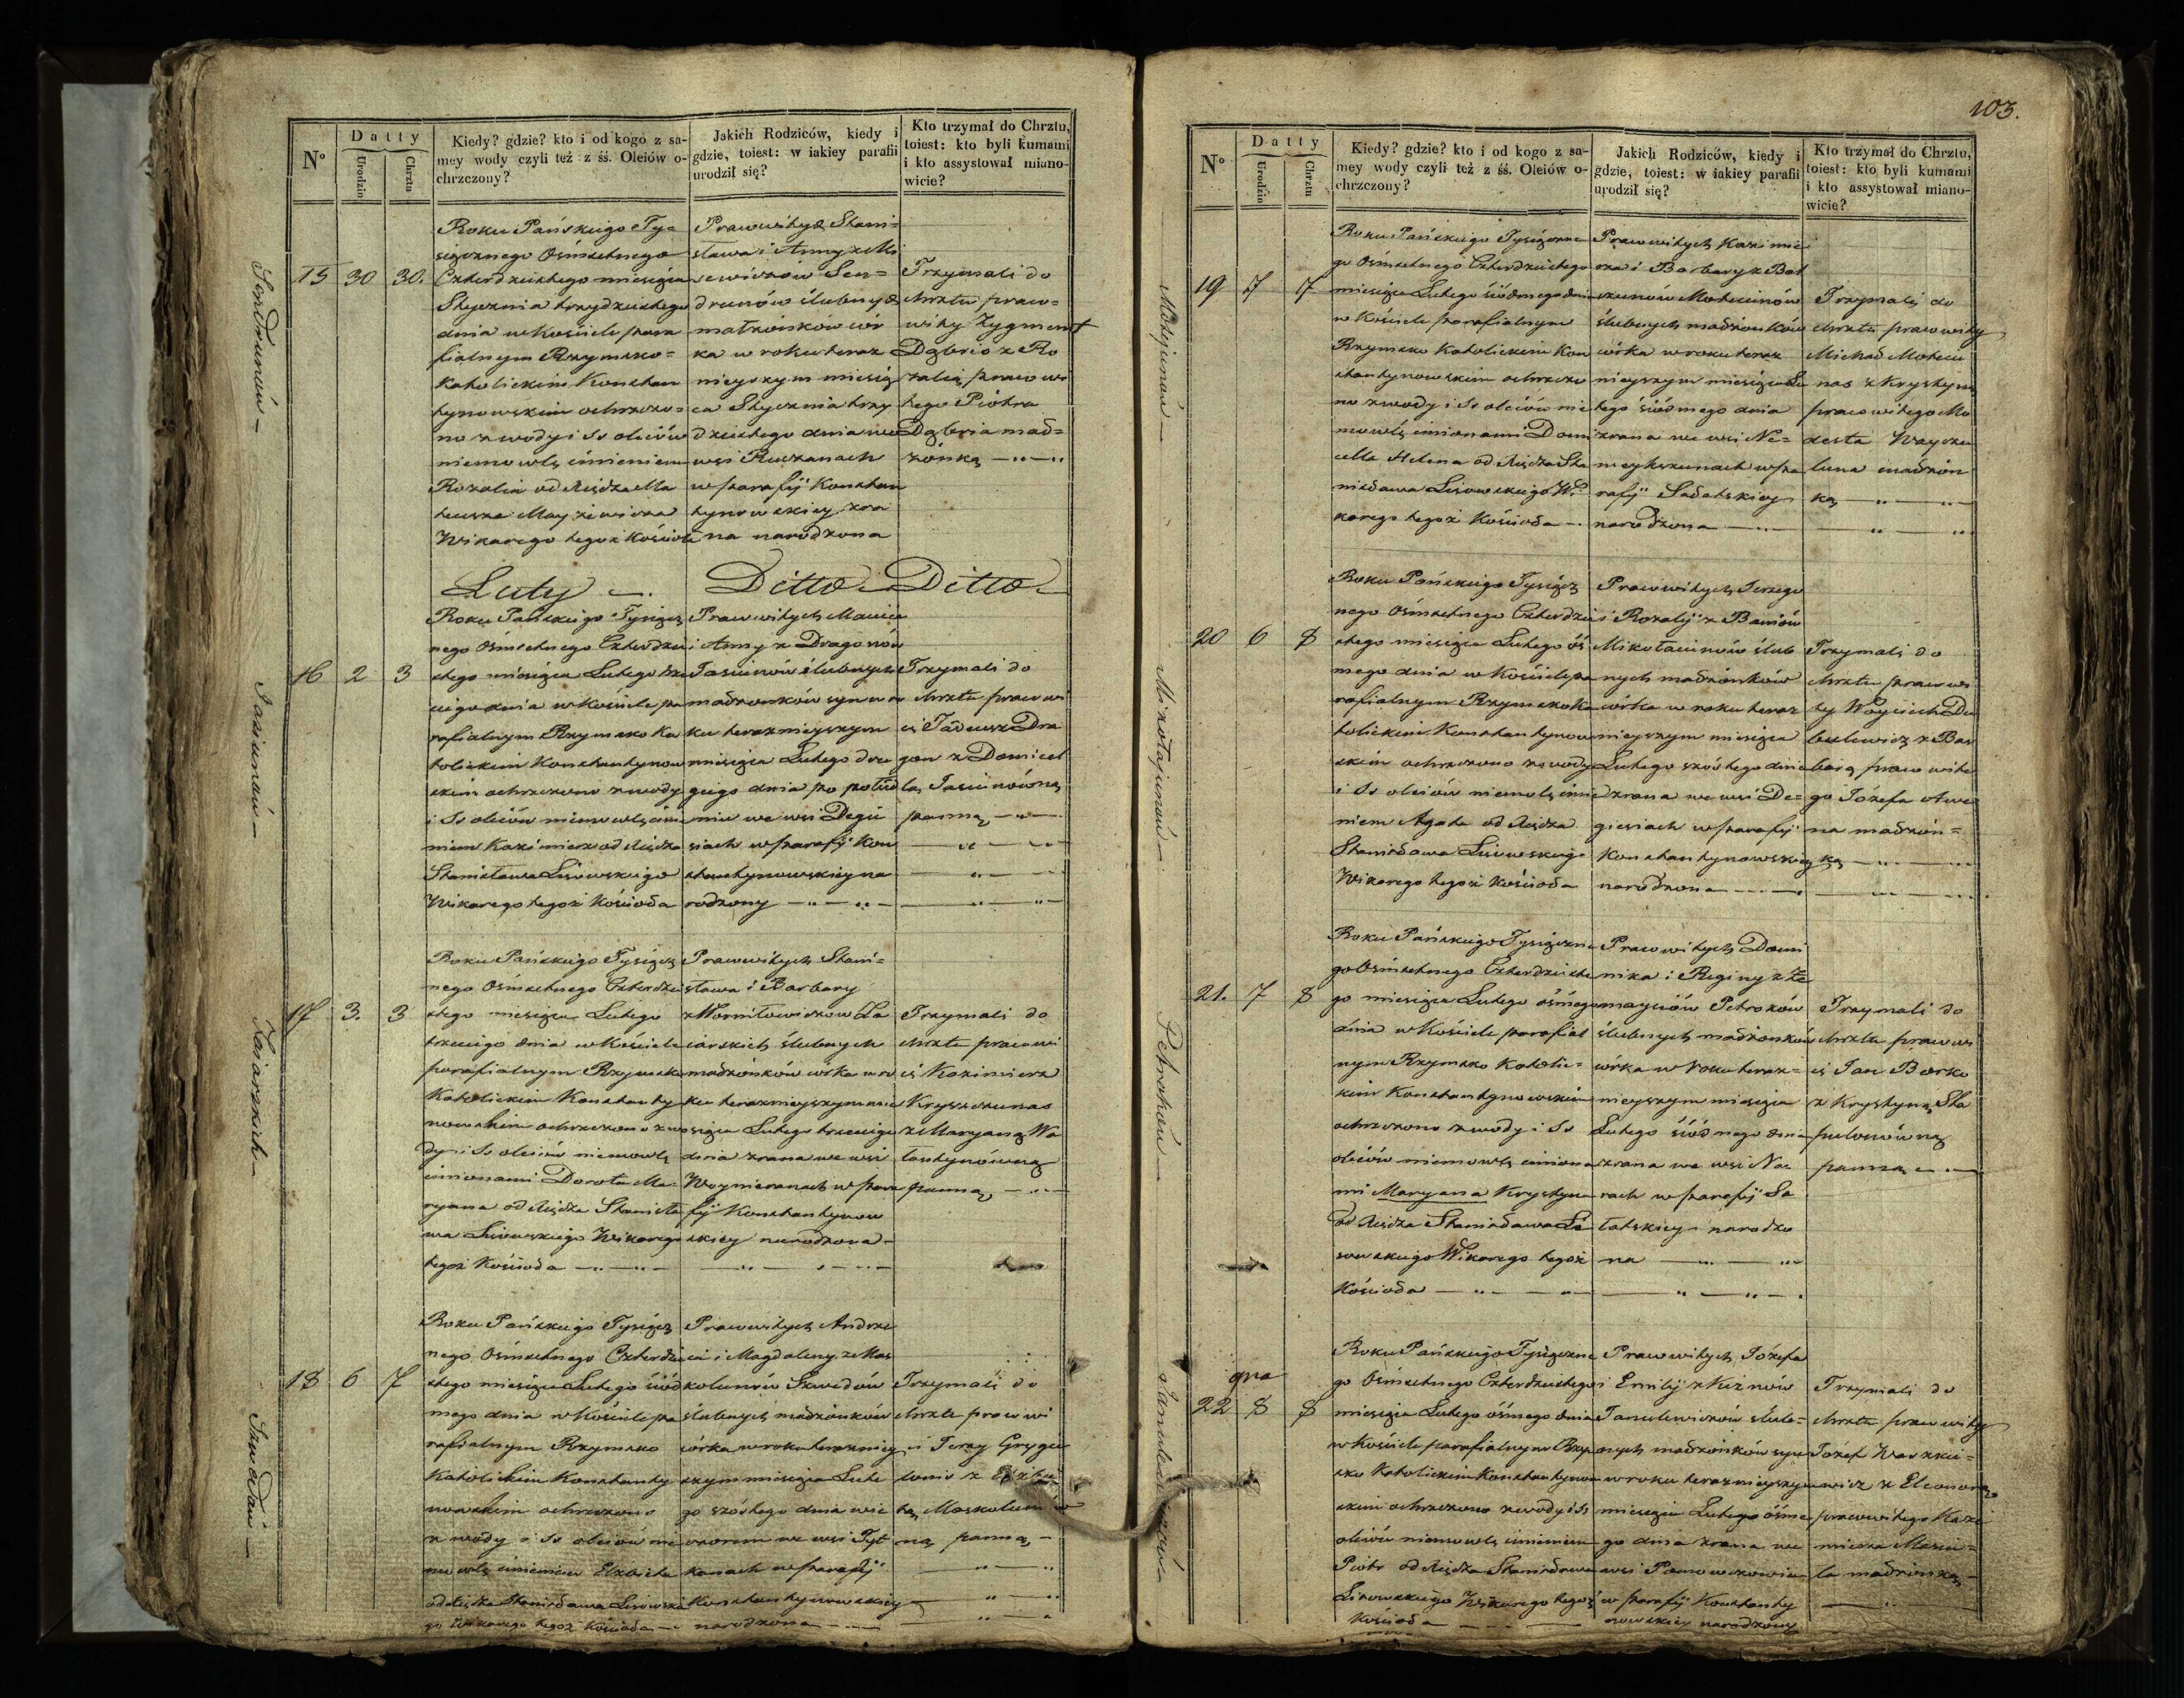 N°
Datty
Urodzin
Chrztu
Kiedy? gdzie? kto i od kogo z sa-
mey wody czyli też z śś. Oleiów o-
chrzczony?
Jakich Rodziców, kiedy i
gdzie, toiest: w iakiey parafii
urodził się?
Kto trzymał do Chrztu,
toiest: kto byli kumami
i kto assystował miano-
wicie?
15 30 30.
Roku Pańskiego Ty=
siącznego Ośmsetnego
Czterdziestego miesiąca
Stycznia trzydziestego
dnia w Kościele para
fialnym Rzymsko=
Katolickim Konstan
tynowskim ochrzczo=
no z wody i SS oleiów
niemowlę imieniem
Rozalia od Xiędza Ma
teusza
Wikarego tegoż Kościoła
Prawowitych Stani=
sława i Anny z Mi
sewiczow Sen=
drunów ślubnych
małżonków cór
ka w roku teraz
nieyszym miesią
ca Stycznia trzy
dziestego dnia we
wsi Ruczanach
w parafij Konstan
tynowskiey zra
na narodzona
Trzymali do
chrztu prawo=
wity Zygmont
Dąbrio z Ro
zalią prawowi
tego Piotra
Dąbria mał=
żonką
Luty Ditto Ditto
16 2 3
Roku Pańskiego Tysiącz
nego Ośmsetnego Czterdzie
stego miesiąca Lutego trze
ciego dnia w Kościele pa
rafialnym Rzymsko Ka
tolickim Konstantynow
skim ochrzczono z wody
i SS oleiów niemowlę imie
niem Kazimierz od Xiędza
Stanisława Lisowskiego
Wikarego tegoż Kościoła
Prawowitych Macieia
i Anny z Dragonów
Jasiunów ślubnych
małżonków syn w ro
ku teraznieyszym
miesiąca Lutego dru
giego dnia po połud
niu we wsi Degie
siach w parafij Kon
stantynowskiey na
rodzony
Trzymali do
chrztu prawowi
ci Tadeusz Dra
gon z Domicel
lą Jasiunówną
panną
17 3. 3
Roku Pańskiego Tysiącz
nego Ośmsetnego Czterdzie
stego miesiąca Lutego
trzeciego dnia w Kościele
parafialnym Rzymsko
Katolickim Konstanty
nowskim ochrzczono z wo
dy i SS oleiów niemowlę
imionami Dorota Ma=
ryana od Xiędza Stanisła
wa Lisowskiego Wikarego
tegoż Kościoła
Prawowitych Stani=
sława i Barbary
z Kornitowiczow La
ślubnych
małżonków córka w ro
ku teraznieyszym mie
siąca Lutego trzeciego
dnia zrana we wsi
w para
fij Konstantynow
skiey narodzona
Trzymali do
chrztu prawowi
ci Kazimierz
Kryszczunas
z Maryaną Wa
lantynówną
panną
18 6 7
Roku Pańskiego Tysiącz
nego Ośmsetnego Czterdzie
stego miesiąca Lutego siód
mego dnia w Kościele pa
rafialnym Rzymsko
Katolickim Konstanty
nowskim ochrzczono
z wody i SS oleiów nie
mowlę imieniem Elżbieta
od Xiędza Stanisława Lisowskie
go Wikarego tegoż Kościoła
Prawowitych Andrze
ia i Magdaleny z Mos
kolunów Szwedów
ślubnych małżonków
córka w roku terazniey
szym miesiąca Lute
go szóstego dnia wie
czorem we wsi Tyt
kanach w parafij
Konstantynowskiey
narodzona
Trzymali do
chrztu prawowi
ci Jerzy Grygu
lanis z Elżbie
tą Moskolunów
ną panną
Sendrunów
Jasiunów
Szwedów
103.
N°
Datty
Urodzin
Chrztu
Kiedy? gdzie? kto i od kogo z sa-
mey wody czyli też z śś. Oleiów o-
chrzczony?
Jakich Rodziców, kiedy i
gdzie, toiest: w iakiey parafii
urodził się?
Kto trzymał do Chrztu,
toiest: kto byli kumami
i kto assystował miano-
wicie?
19 7 7
Roku Pańskiego Tysiączne
go Ośmsetnego Czterdziestego
miesiąca Lutego siódmego dnia
w Kościele parafialnym
Rzymsko Katolickim Kon
stantynowskim ochrzczo
no z wody i SS oleiów nie
mowlę imionami Domi
cella Helena od Xiędza Sta
nisława Lisowskiego Wi
karego tegoż Kościoła
Prawowitych Kazimie
rza i Barbary z Bał
czunów Moteiunów
ślubnych małżonków
córka w roku teraz
nieyszym miesiąca Lu
tego siódmego dnia
zrana we wsi Ne=
w pa
rafij Sałatskiey
narodzona
Trzymali do
chrztu prawowity
Michał Moteiu
nas z Krystyną
prawowitego Mo
desta Wayczu
luna małżon
ką
20 6 8
Roku Pańskiego Tysiącz
nego Ośmsetnego Czterdzie
stego miesiąca Lutego ós
mego dnia w Kościele pa
rafialnym Rzymsko Ka
tolickim Konstantynow
skim ochrzczono z wody
i SS oleiów niemowlę imie
niem Agata od Xiędza
Stanisława Lisowskiego
Wikarego tegoż Kościoła
Prawowitych Jerzego
i Rozalij z Baniów
Mikołaiunów ślub
nych małżonków
córka w roku teraz
nieyszym miesiąca
Lutego szóstego dnia
zrana we wsi De=
giesiach w parafij
Konstantynowskiey
narodzona
Trzymali do
chrztu prawowi
ty Woyciech Du
bulewicz z Bar
barą prawowite
go Józefa Awe
na małżon=
ką
21. 7 8
Roku Pańskiego Tysiączne
go Ośmsetnego Czterdzieste
go miesiąca Lutego ośmego
dnia w Kościele parafial
nym Rzymsko Katolic=
kim Konstantynowskim
ochrzczono z wody i SS
oleiów niemowlę imiona
mi Maryana Krystyna
od Xiędza Stanisława Li
sowskiego Wikarego tegoż
Kościoła
Prawowitych Domi
nika i Reginy z Że
mayciów Petroków
ślubnych małżonków
córka w roku teraz=
nieyszym miesiąca
Lutego siódmego dnia
zrana we wsi No
rach w parafij Sa
łatskiey narodzo
na
Trzymali do
chrztu prawowi
ci Jan Borko
z Krystyną Sta
pulonówną
panną
22 8 8
Roku Pańskiego Tysiączne
go Ośmsetnego Czterdziestego
miesiąca Lutego ośmego dnia
w Kościele parafialnym Rzym
sko Katolickim Konstantynow
skim ochrzczono z wody i SS
oleiów niemowlę imieniem
Piotr od Xiędza Stanisława
Lisowskiego Wikarego tegoż
Kościoła
Prawowitych Józefa
i Emilij z Kiżnów
Janulewiczów ślub=
nych małżonków syn
w roku teraznieyszym
miesiąca Lutego ósme
go dnia zrana we
wsi
w parafij Konstanty
nowskiey narodzony
Trzymali do
chrztu prawowity
Jozef Waszkie=
wicz z Eleonorą
prawowitego Kazi
mierza
małżonką
Moteiunów
Mikołaiunów
Petroków
Janulewiczów